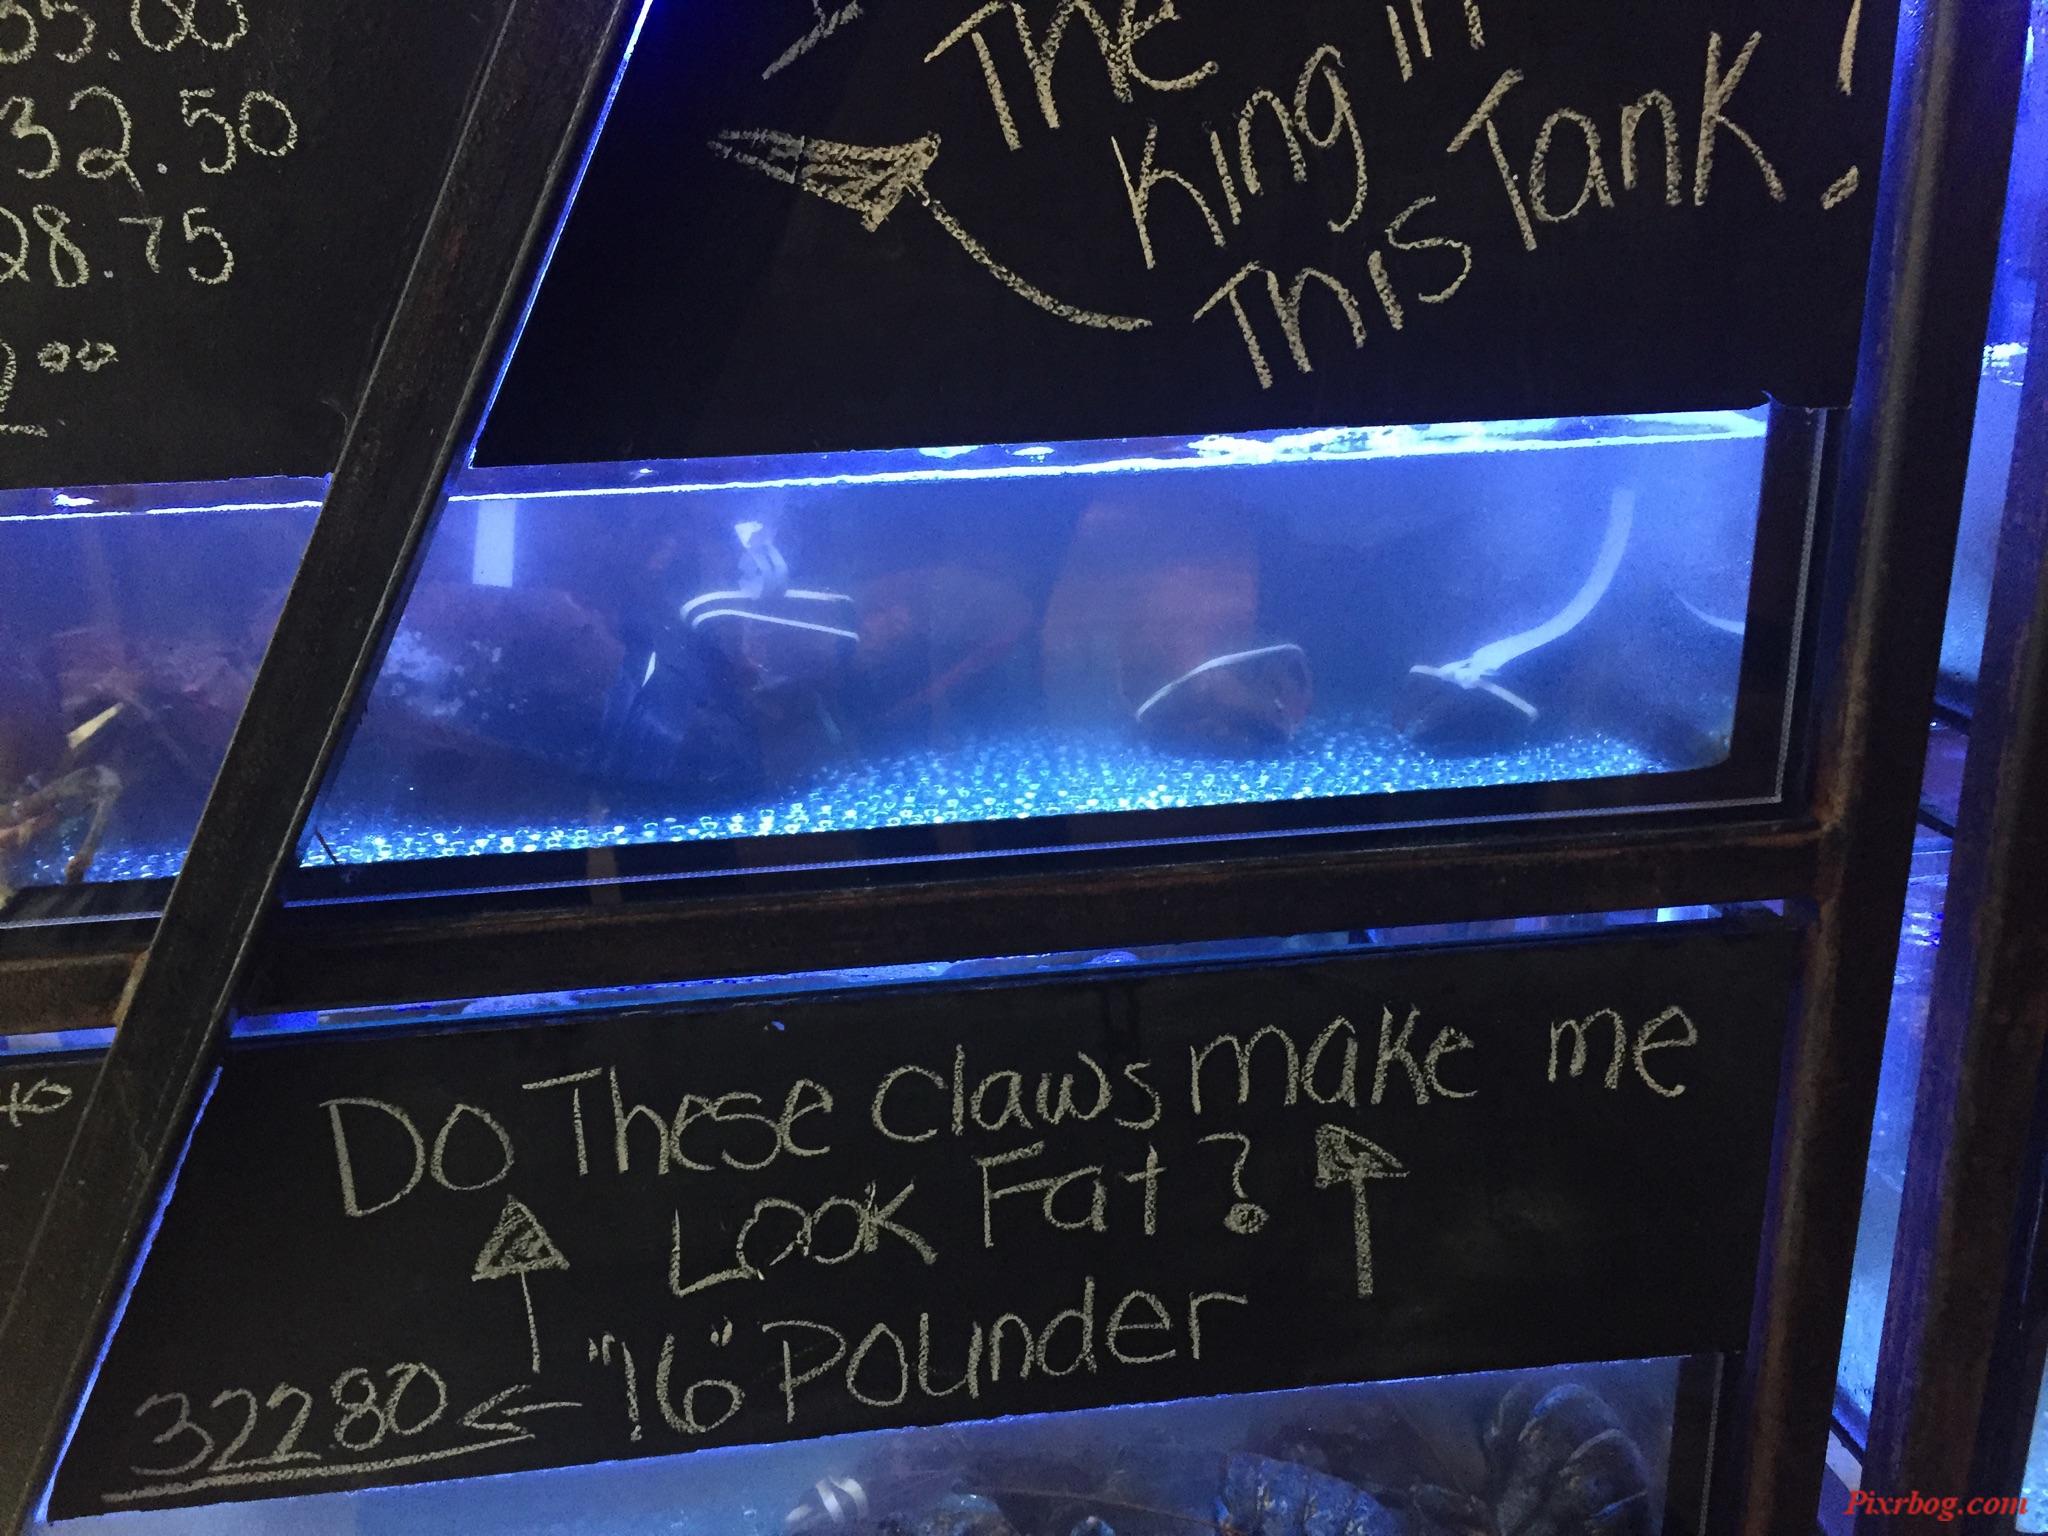 32.50
28.75
The
King in
This Tank!
Do These Claws make me
Look Fat?
"16" Pounder
32280
Pixrbog.com